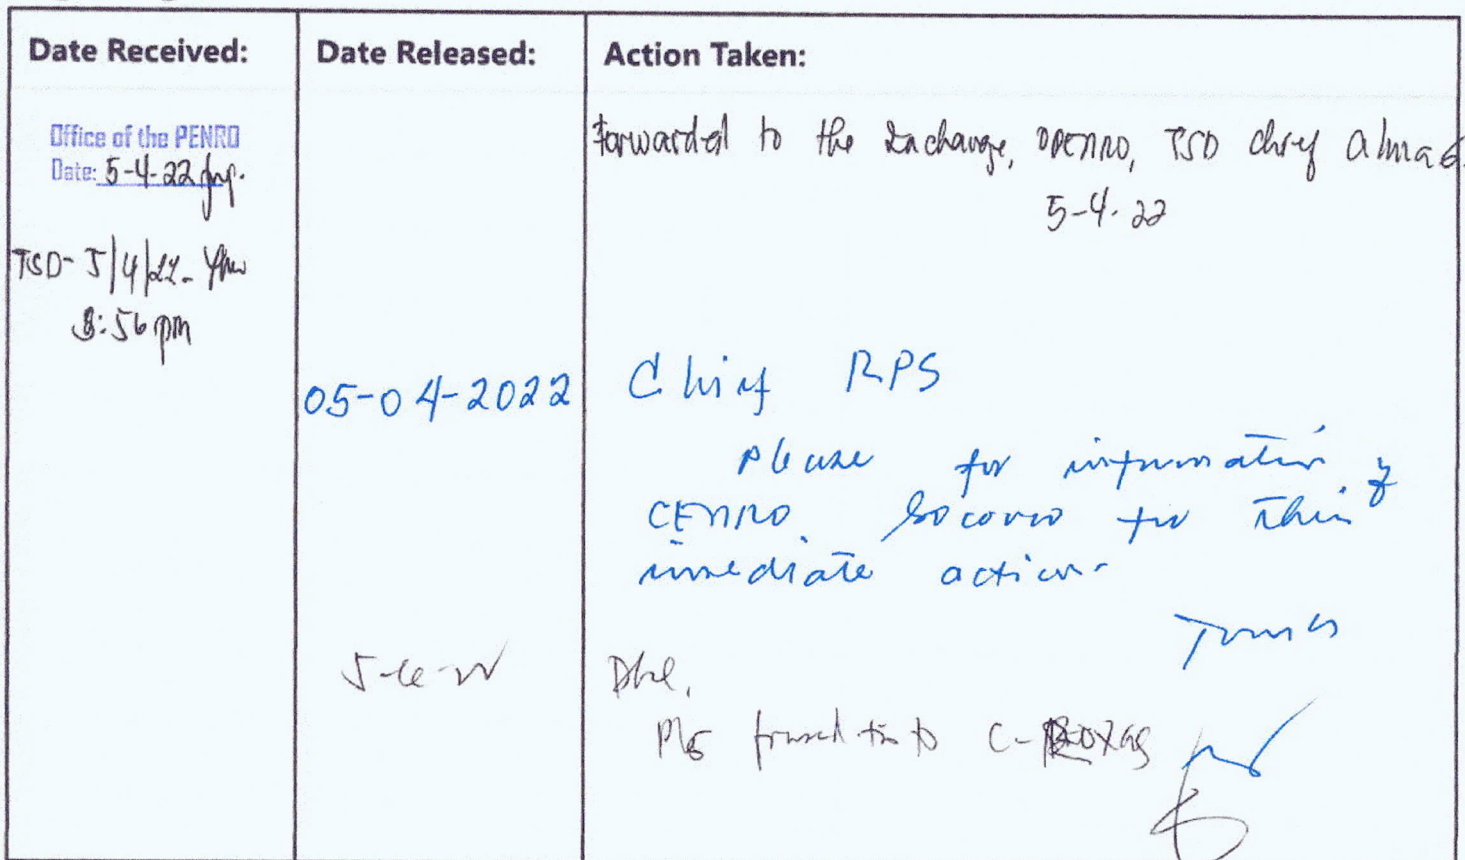 Date Received:
Date Released:
Action Taken:
Office of the PENRO
Date: 5-4-22
TSD- 5/4/22-
3:56 pm
Forwarded to the Incharge, OPENRO, TSD chief
5-4-22
05-04-2022
Chief RPS
Please for information of
CENRO Socorro for their
immediate action-
5-6-22
Pls forward this to C-ROXAS